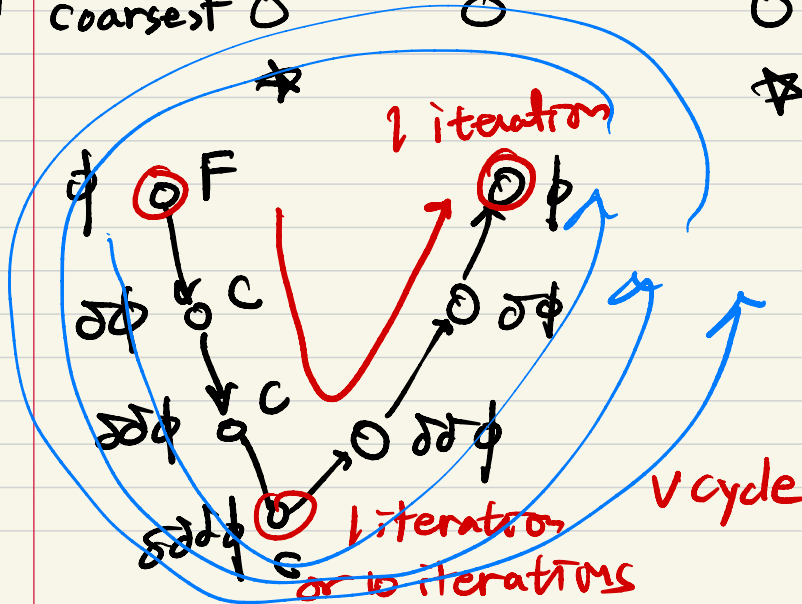 coarsest
1 iteration
ϕ F ϕ
δϕ C δϕ
δδϕ C δδϕ
δδδϕ C 1 iteration
or 10 iterations
V cycle